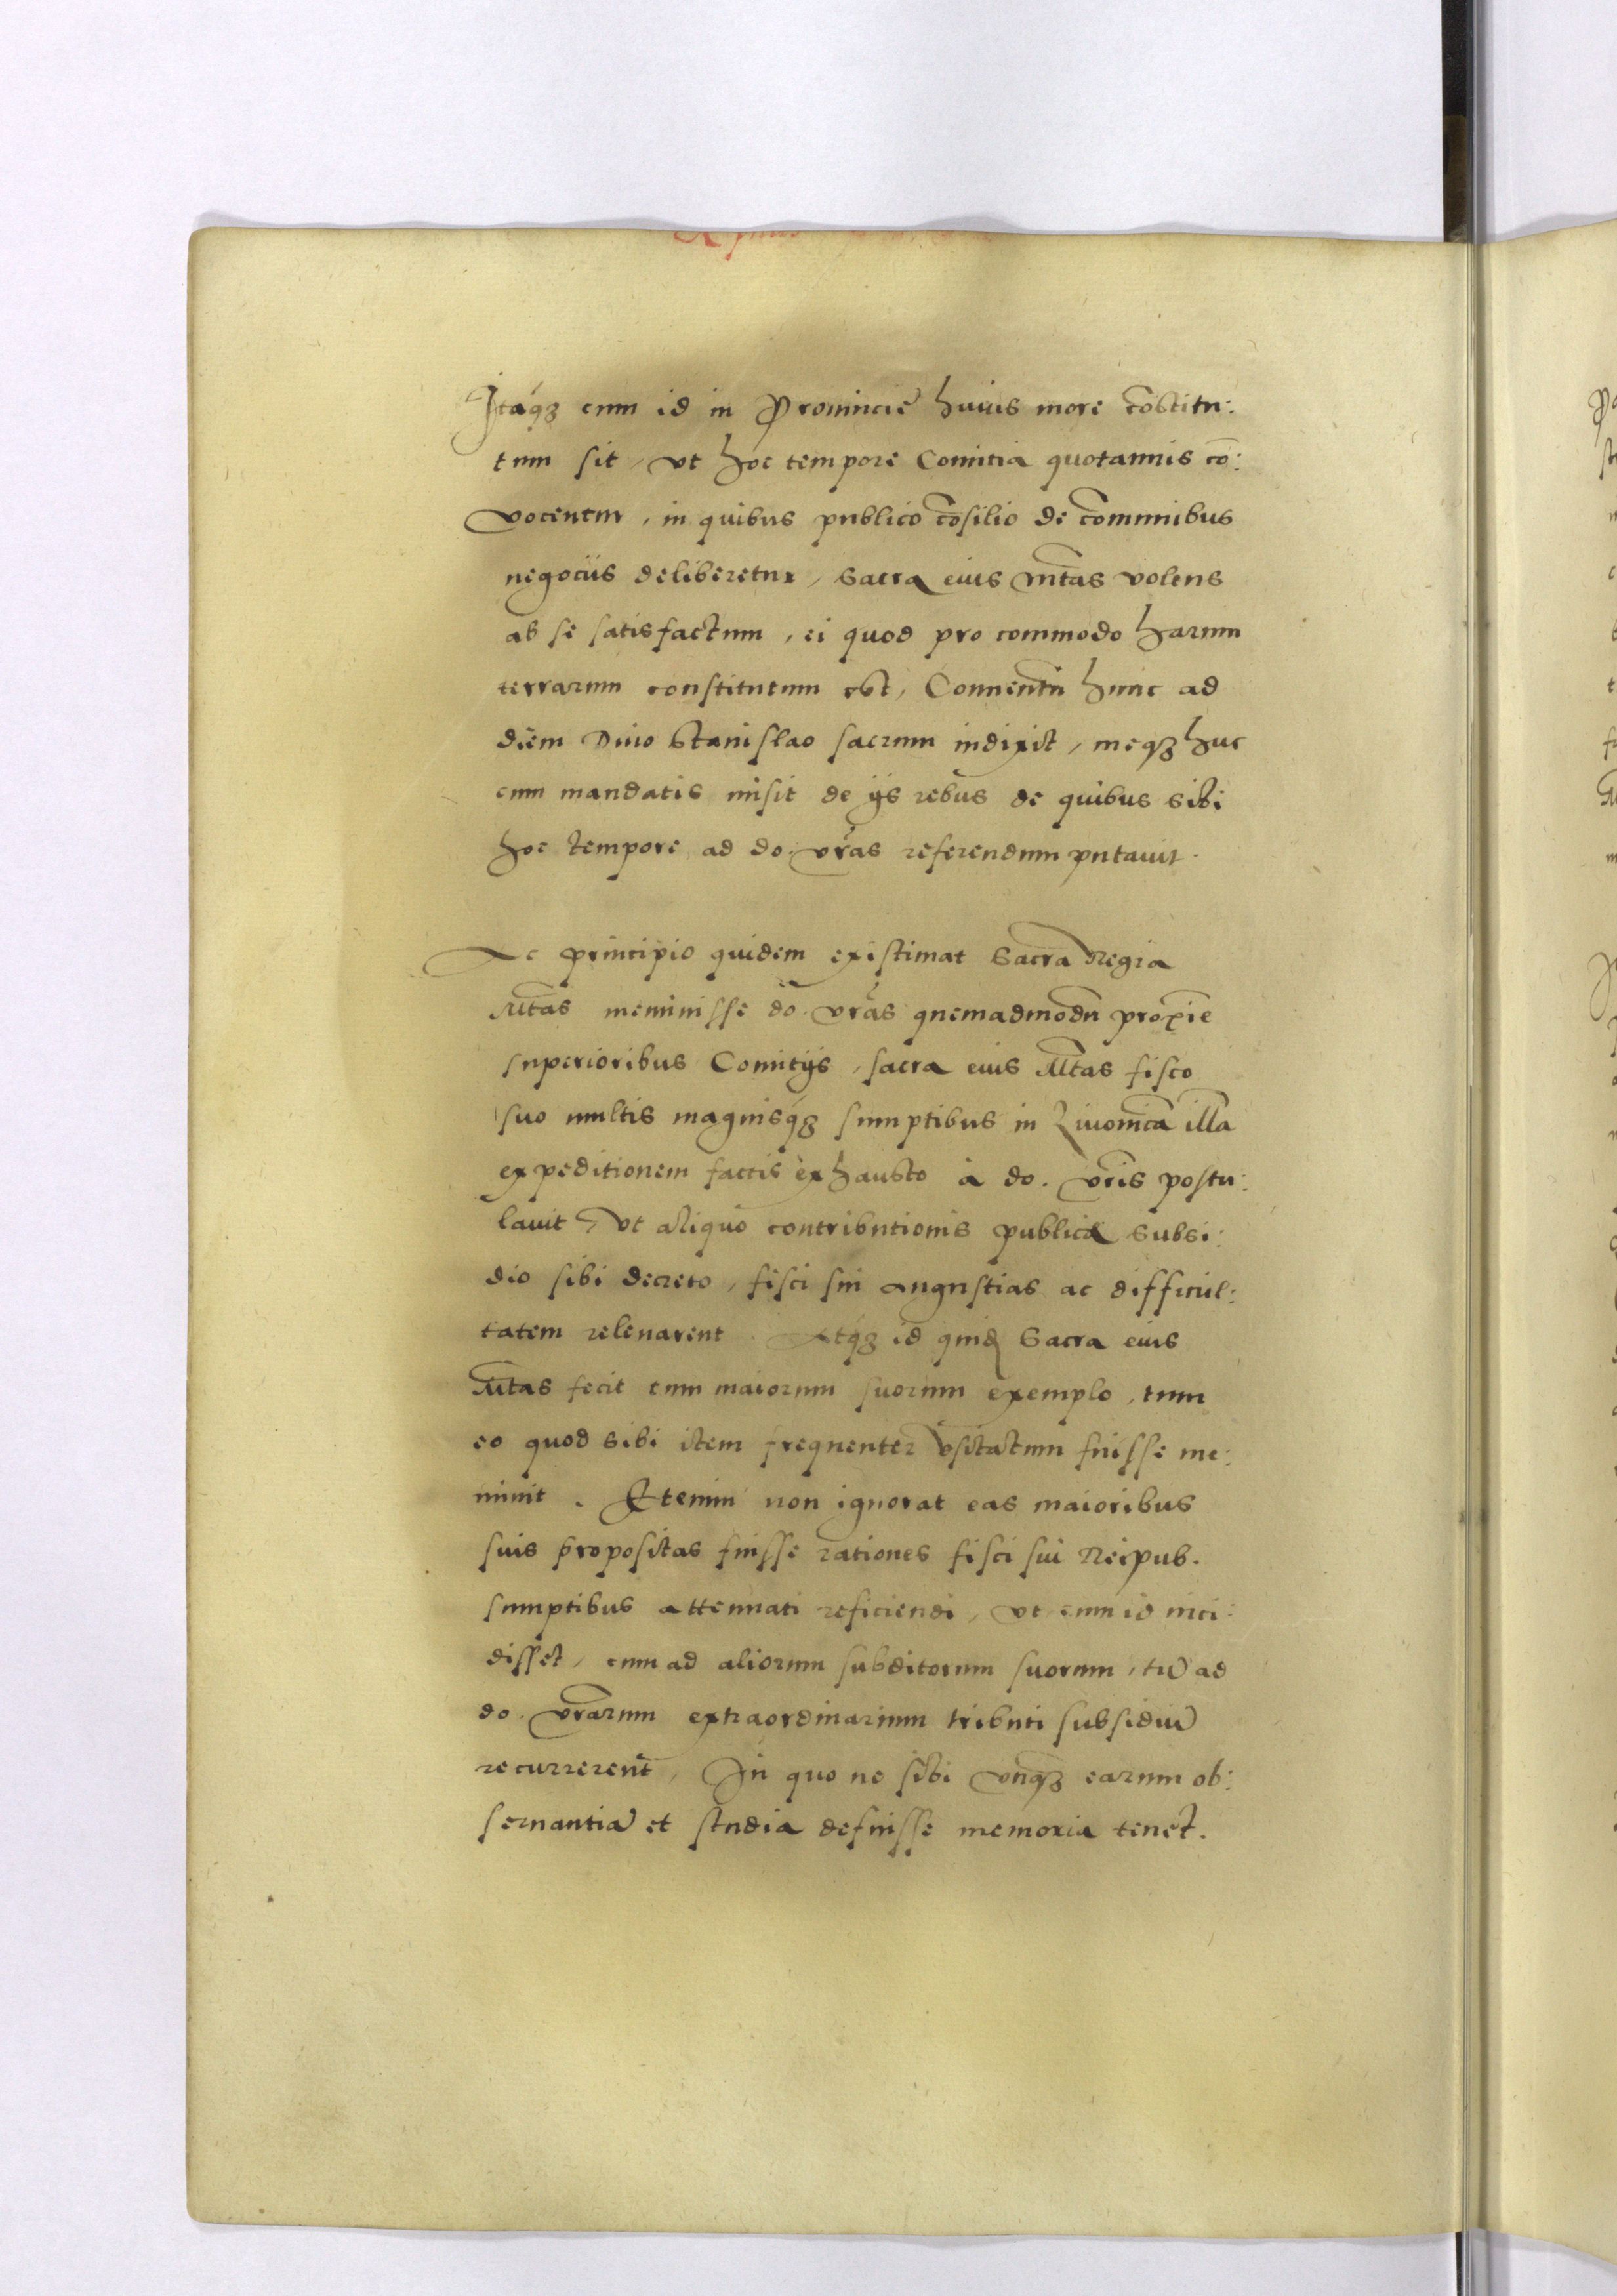 Itaq&#x301;ʒ cum id in Prouincię huius more cõstitu:
tum sit, vt hoc tempore Comitia quotannis cõ:
vocentur, in quibus publico cõsilio de cõmunibus
negociis deliberetur, Sacra eius Mtas volens
ab se satisfactum, ei quod pro commodo harum
terrarum constitutum est, Conuentũ hunc ad
diem Diuo Stanislao sacrum indixit, meqʒ huc
cum mandatis misit de ijs rebus de quibus sibi
hoc tempore ad do. vrãs referendum putauit.
Ac principio quidem existimat Sacra Regia
Mtas meminisse do. vrãs quemadmodũ proxĩe
superioribus Comitijs, sacra eius Mtas fisco
suo multis magnisqʒ sumptibus in Liuonicã illã
expeditionem factis exhausto à do. vrĩs postu:
lauit, vt aliquo contributionis publicæ subsi:
dio sibi decreto, fisci sui angustias ac difficul:
tatem releuarent. Atqʒ id quidẽ Sacra eius
Mtas fecit cum maiorum suorum exemplo, tum
eo quod sibi item frequenter vsitatum fuisse me:
minit. Etenim non ignorat eas maioribus
suis propositas fuisse rationes fisci sui Reipub.
sumptibus attenuati reficiendi, vt cum id inci:
disset, cum ad aliorum subditorum suorum, tũ ad
do. vrãrum extraordinarium tributi subsidiũ
recurrerent, In quo ne sibi vnqʒ earum ob:
seruantiã et studia defuisse memoria tenet.